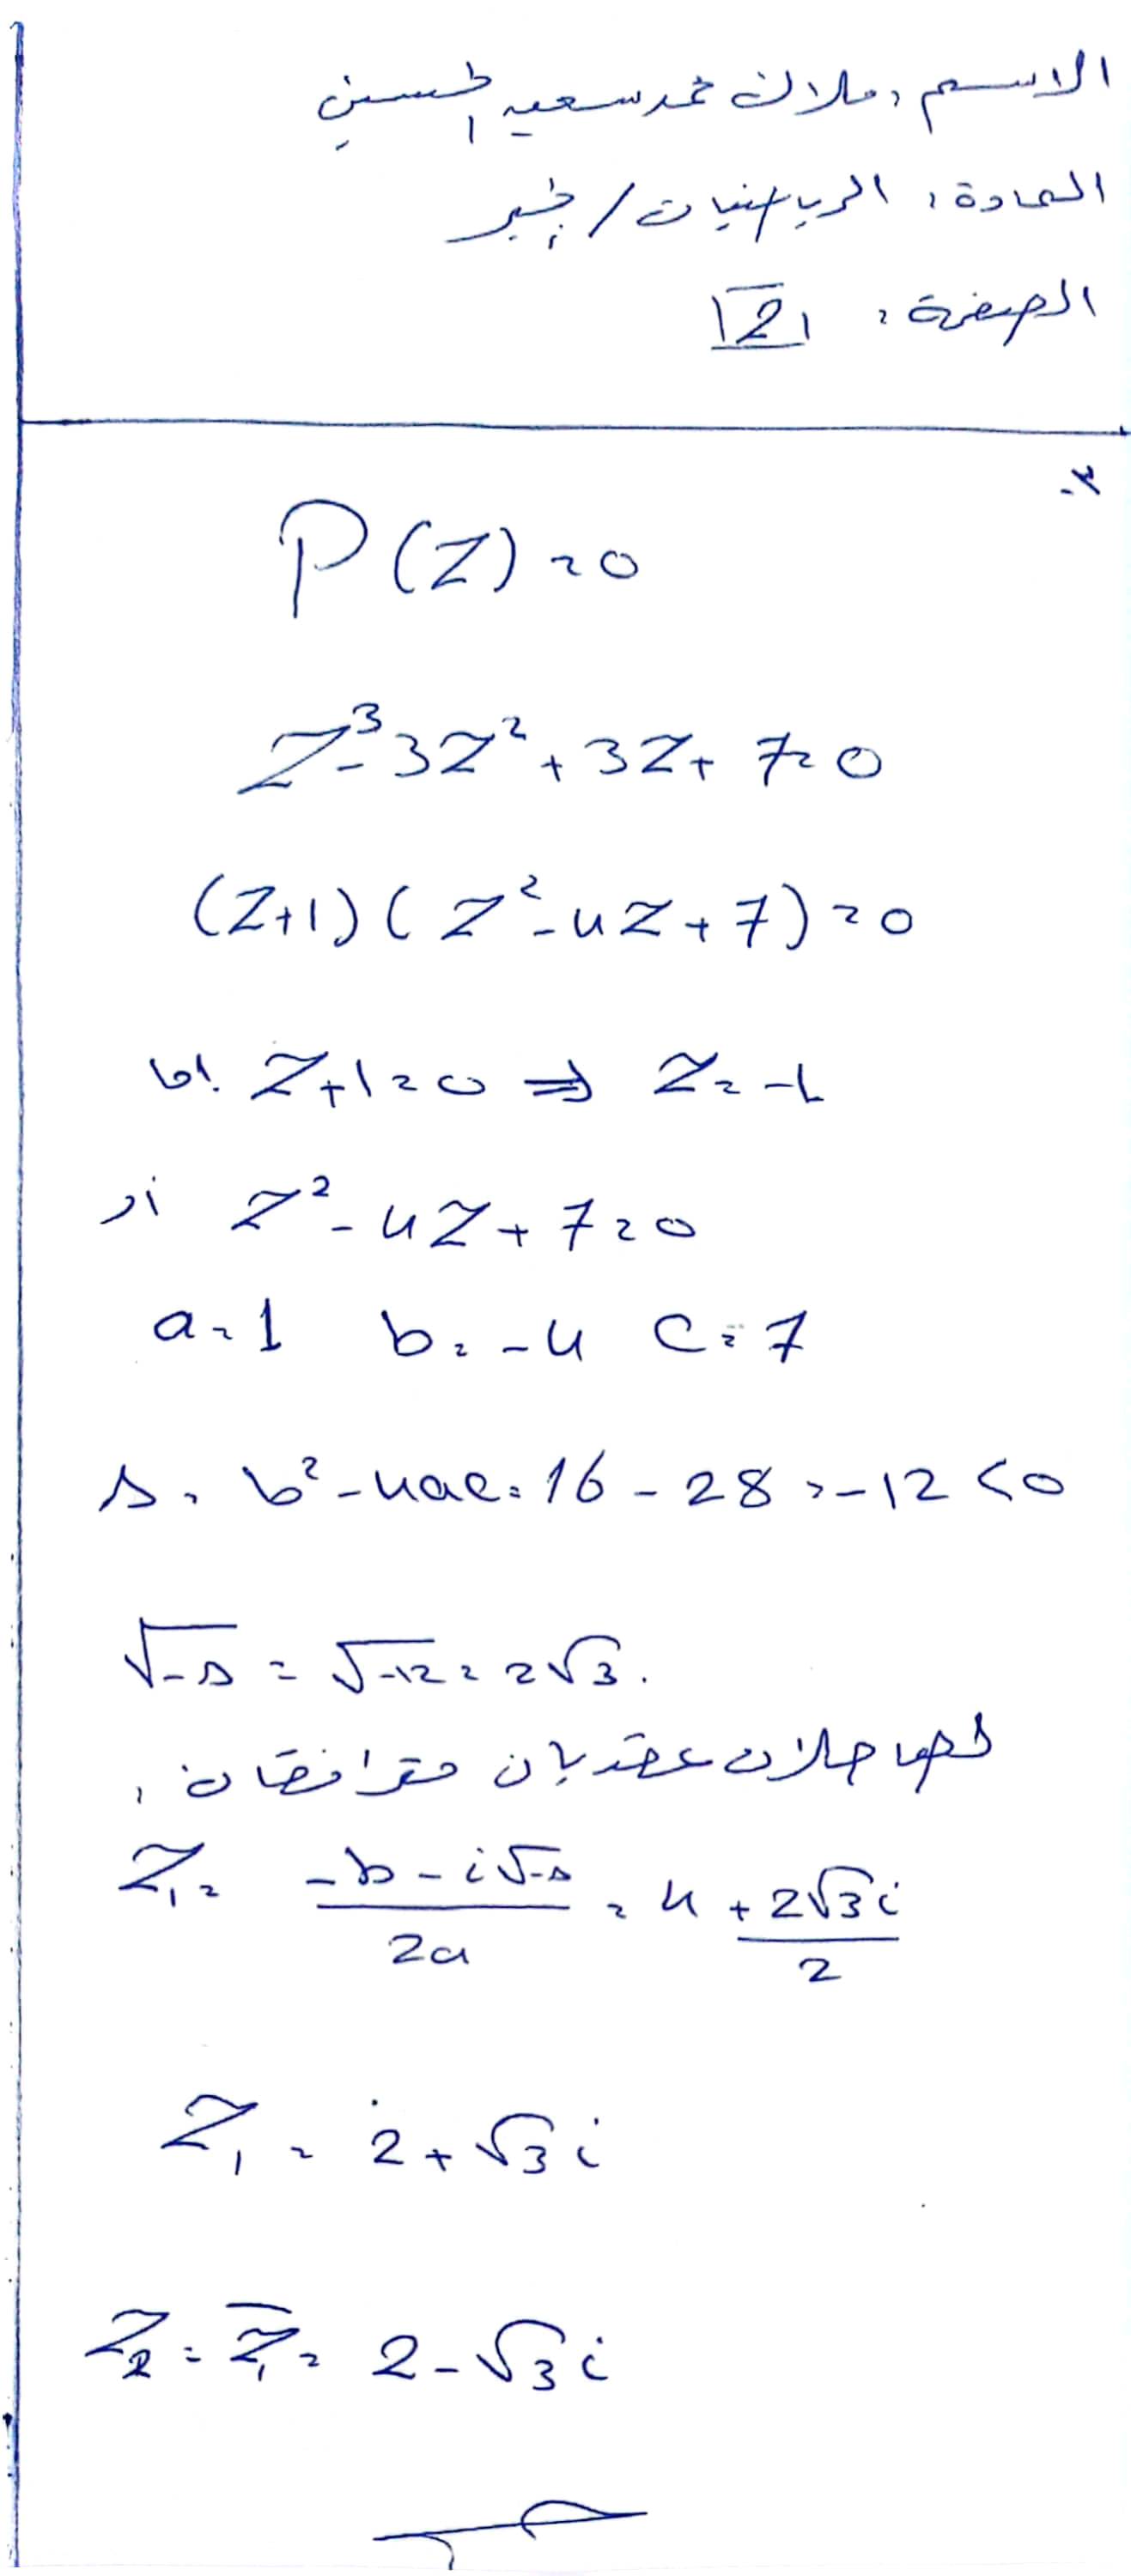 الاسم: ملاك محمد سعيد الحسين
المادة: الرياضيات / جبر
الصفحة: 2
3.
P(Z) = 0
Z³ - 3Z² + 3Z + 7 = 0
(Z+1)(Z² - 4Z + 7) = 0
إما Z+1 = 0 ⇒ Z = -1
أو Z² - 4Z + 7 = 0
a = 1 b = -4 c = 7
Δ = b² - 4ac = 16 - 28 = -12 < 0
√-Δ = √-12 = 2√3.
لها حلان عقديان مترافقان:
Z₁ = (-b - i√-Δ)/2a = 4 + 2√3i/2
Z₁ = 2 + √3 i
Z₂ = Z̄₁ = 2 - √3 i